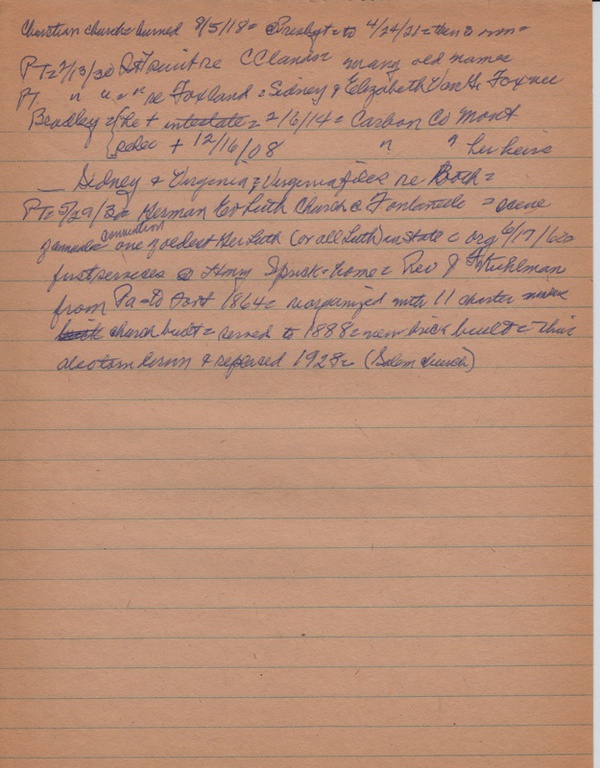 Christian church = burned 8/5/18 = Presbyt = to 4/24/21 = then
PT = 2/13/30 re CClands = many old names
Pt. " " = " re Foxland = Sidney & Elizabeth Fox
Bradley = { he + intestate = 2/6/14 = Carbon Co Mont
+ 12/16/08 " " her heirs
— Sidney & Virginia = Virginia files re Both =
PT = 5/29/30 = Herman Ev Luth Church @ = scene
of connection one of oldest Ger Luth (or all Luth) in state = org 6/17/60
first services @ Henry home = Rev J Kuhlman
from Pa = to 1864 = reorganized with 11 charter
church built = served to 1888 = new brick built = This
also torn down & replaced 1928 = (Salem church)